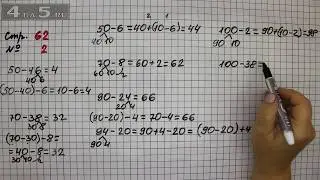 Стр. 62
№ 2
50-46=4
40 6
(50-40)-6=10-6=4
70-38=32
30 8
(70-30)-8=
=40-8=32
50-6=40+(10-6)=44
40 10
70-8=60+2=62
60 10
90-24=66
(90-20)-4=70-4=66
94-20=90+4-20=(90-20)+4
90 4
100-2=90+(10-2)=98
90 10
100-38=